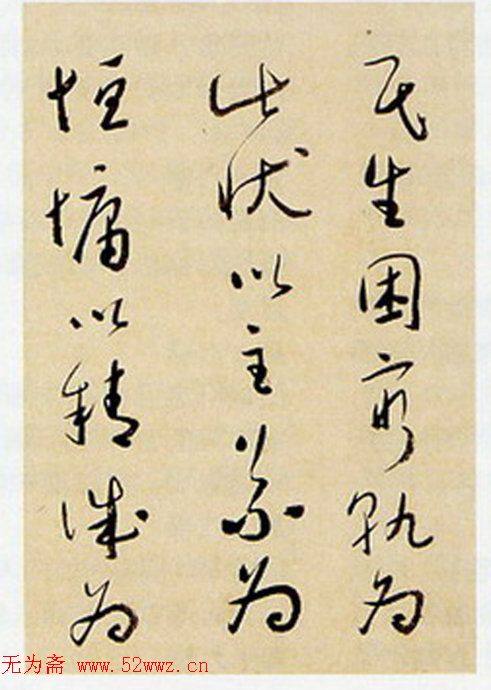 民生困窮孰為
此狀以主義為
垣墉以精誠為
无为斋 www.52wwz.cn